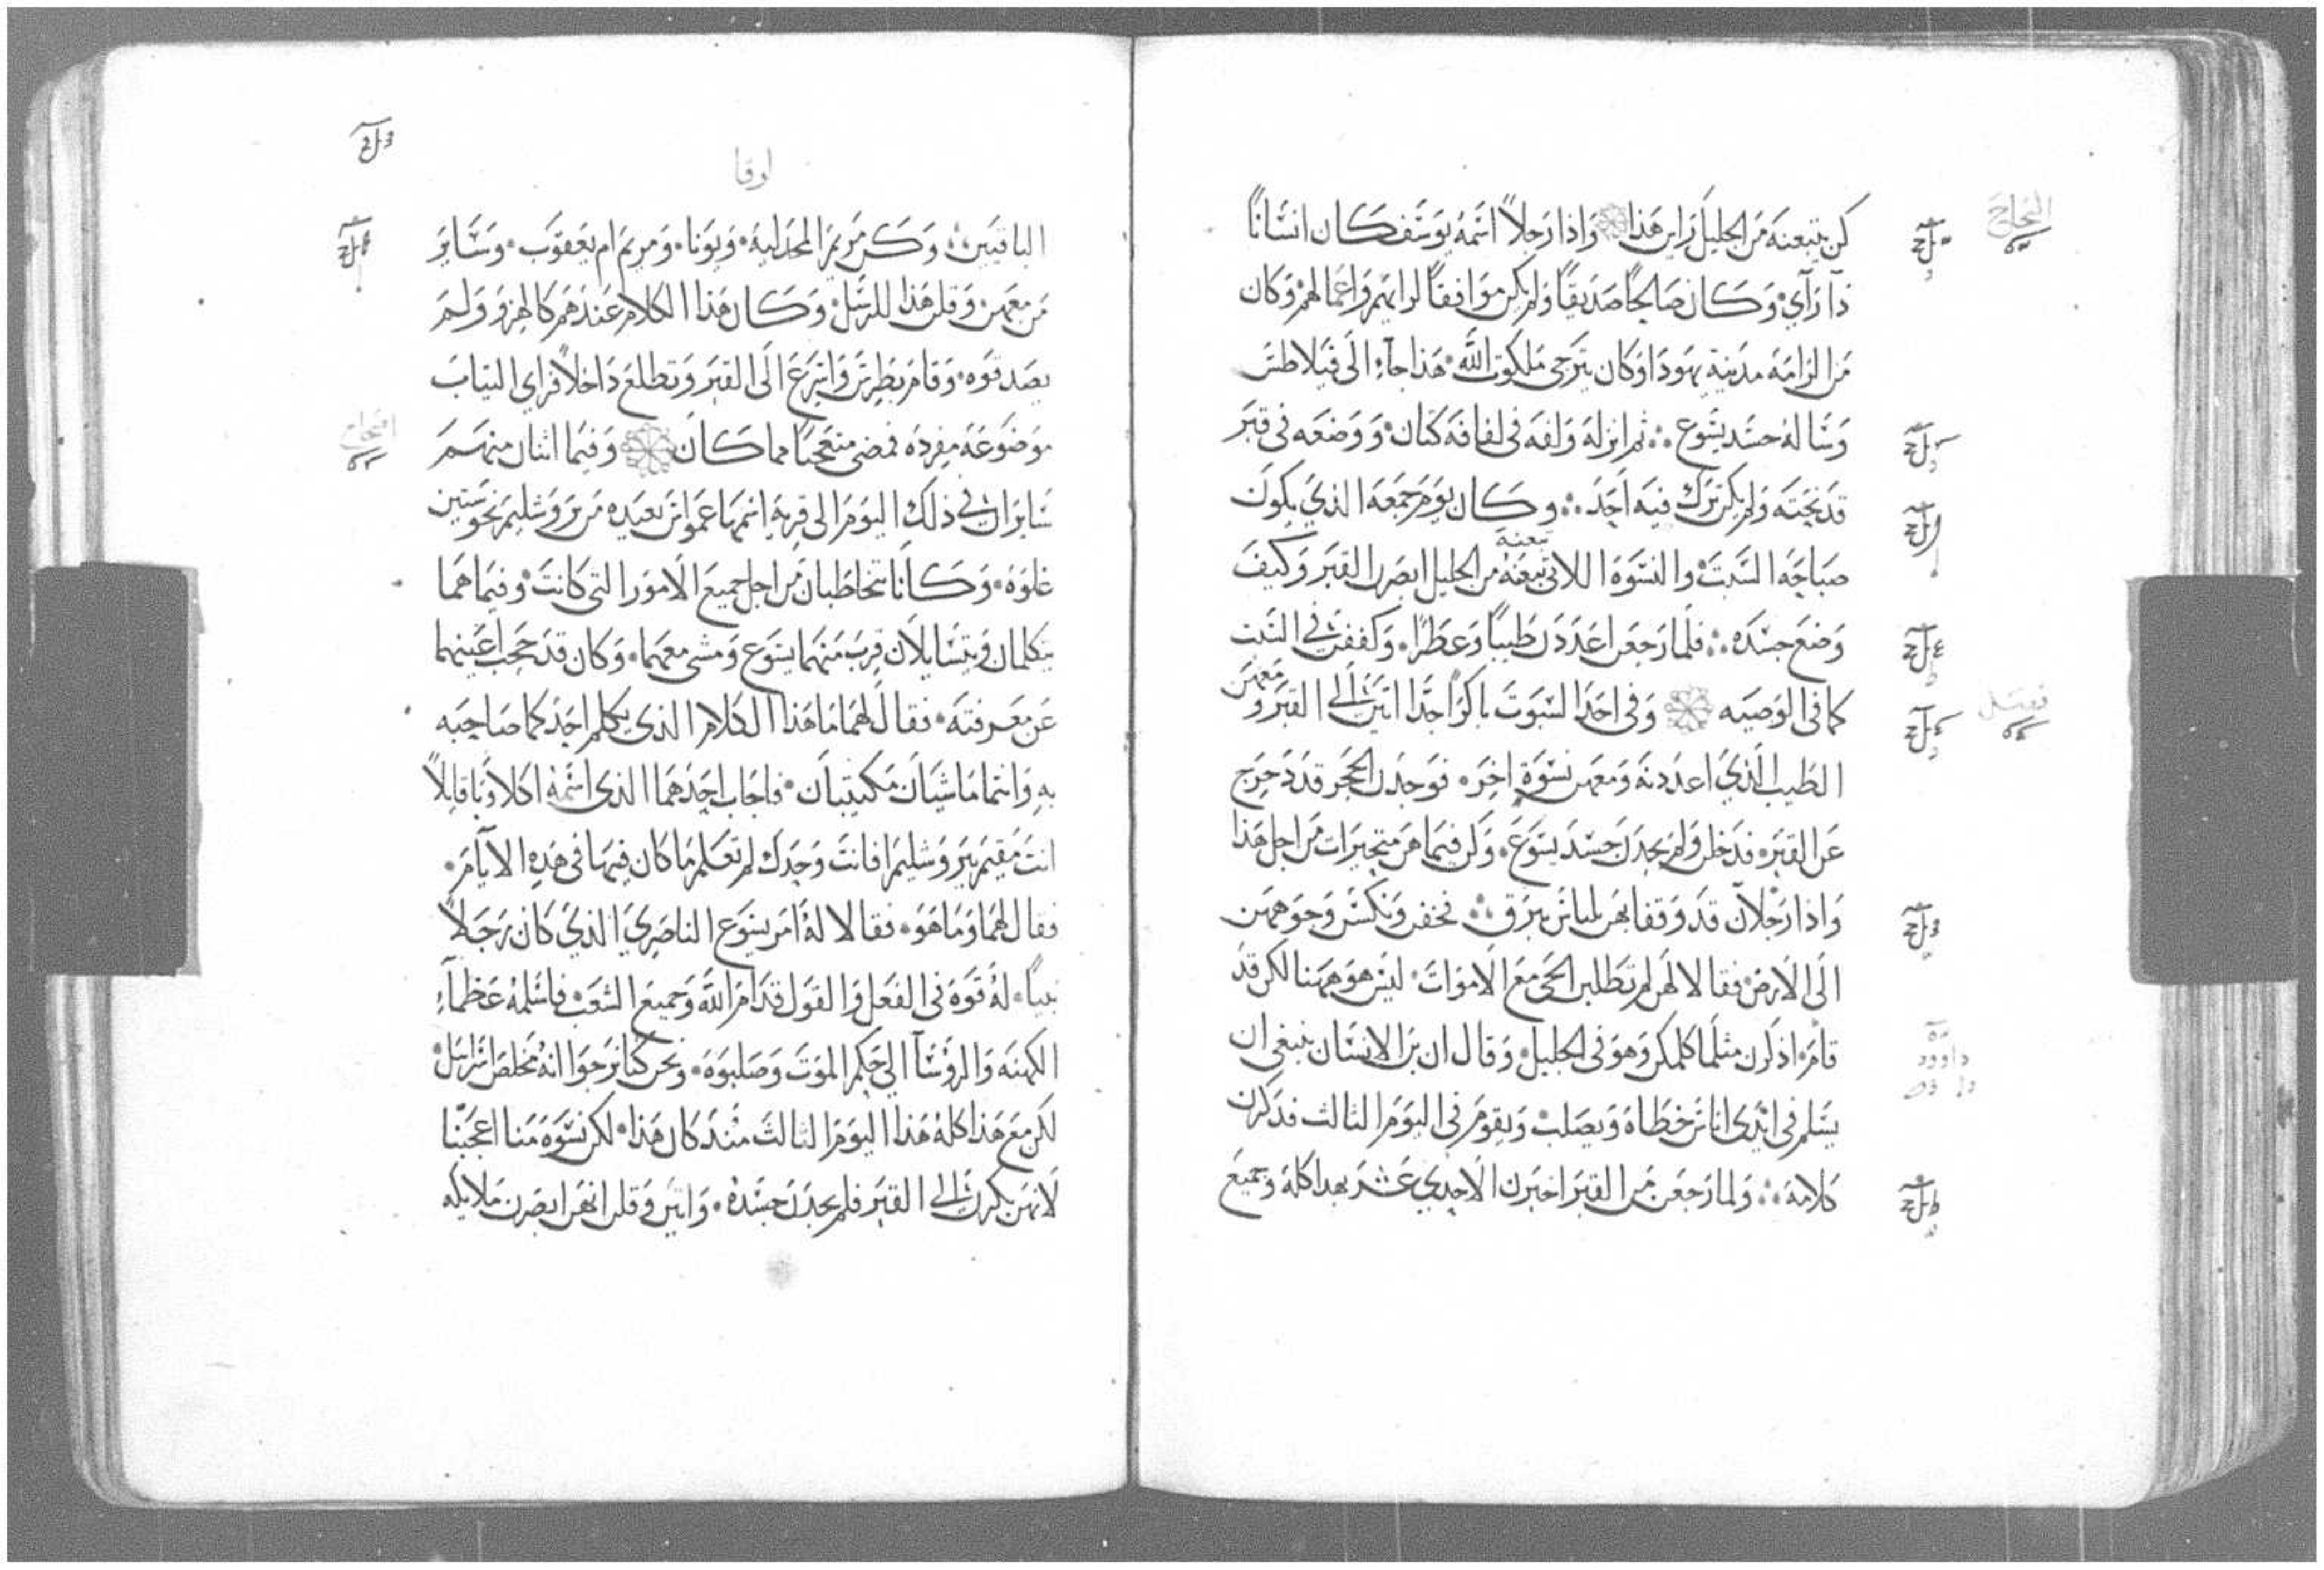 كن يتبعنه من الجليل راين هذا واذا رجلاً اسمه يوسف كان انسانًا
ذا رآي وكان صالحًا صديقًا ولم يكن موافقًا لرايهم واعمالهم وكان
من الرامه مدينة يهودا وكان يترجى ملكوت الله هذا جآء الى فيلاطس
وساله جسد يسوع ثم انزله ولفه فى لفافه كتان ووضعه فى قبر
قد نحته ولم يكن ترك فيه احد وكان يوم جمعه الذي يكون
صباحه السبت والنسوه اللاتى تبعنه من الجليل ابصرن القبر وكيف
وضع جسده فلما رجعن اعددن طيبًا وعطرًا وكففن في السبت
كما فى الوصيه وفى احد السبوت باكرًا جدًا اتين الى القبر ومعهن
الطيب الذي اعددنه ومعهن نسوة اخر فوجدن الحجر قد دحرج
عن القبر فدخلن ولم يجدن جسد يسوع وكن فيما هن متحيرات من اجل هذا
واذا رجلان قد وقفا بهن بلباس يبرق فخفن ونكسن وجوههن
الى الارض فقالا لهن لم تطلبن الحى مع الاموات ليس هو ههنا لكن قد
قام اذكرن مثلما كلمكن وهو فى الجليل وقال ان بن الانسان ينبغى ان
يسلم فى ايدى اناس خطاه ويصلب ويقوم فى اليوم الثالث فذكرن
كلامه ولما رجعن من القبر اخبرن الاحدي عشر بهدا كله وجميع
فصل
داوود
لوقا
الباقيين وكن مريم المجدليه ويونا ومريم ام يعقوب وسائر
من معهن وقلن هذا للرسل وكان هذا الكلام عندهم كالهزو ولم
يصدقوه وقام بطرس واسرع الى القبر وتطلع داخلاً فراي الثياب
موضوعه مفرده فمضى متعجبًا مما كان وفيما اثنان منهم
سايران في ذلك اليوم الى قرية اسمها عمواس بعيده من يروشليم نحو ستين
غلوه وكانا يتخاطبان من اجل جميع الامور التى كانت وفيما هما
يتكلمان ويتسايلان قرب منهما يسوع ومشى معهما وكان قد حجب اعينهما
عن معرفته فقال لهما ما هذا الكلام الذى يكلم احدكما صاحبه
به وانتما ماشيان مكتيبان فاجاب احدهما الذى اسمه اكلاوبا قايلاً
انت مقيم بيروشليم افانت وحدك لم تعلم ما كان فيها فى هذه الايام
فقال لهما وما هو فقالا له امر يسوع الناصري الذي كان رجلاً
نبيًا له قوه فى الفعل والقول قدام الله وجميع الشعب فاسلمه عظمآء
الكهنه والروسآ الى حكم الموت وصلبوه ونحن كنا نرجوا انه مخلص اسرايل
لكن مع هذا كله هذا اليوم الثالث منذ كان هذا لكن نسوه منا اعجبننا
لانهن بكرن الى القبر فلم يجدن جسده واتين وقلن انهن ابصرن ملايكه